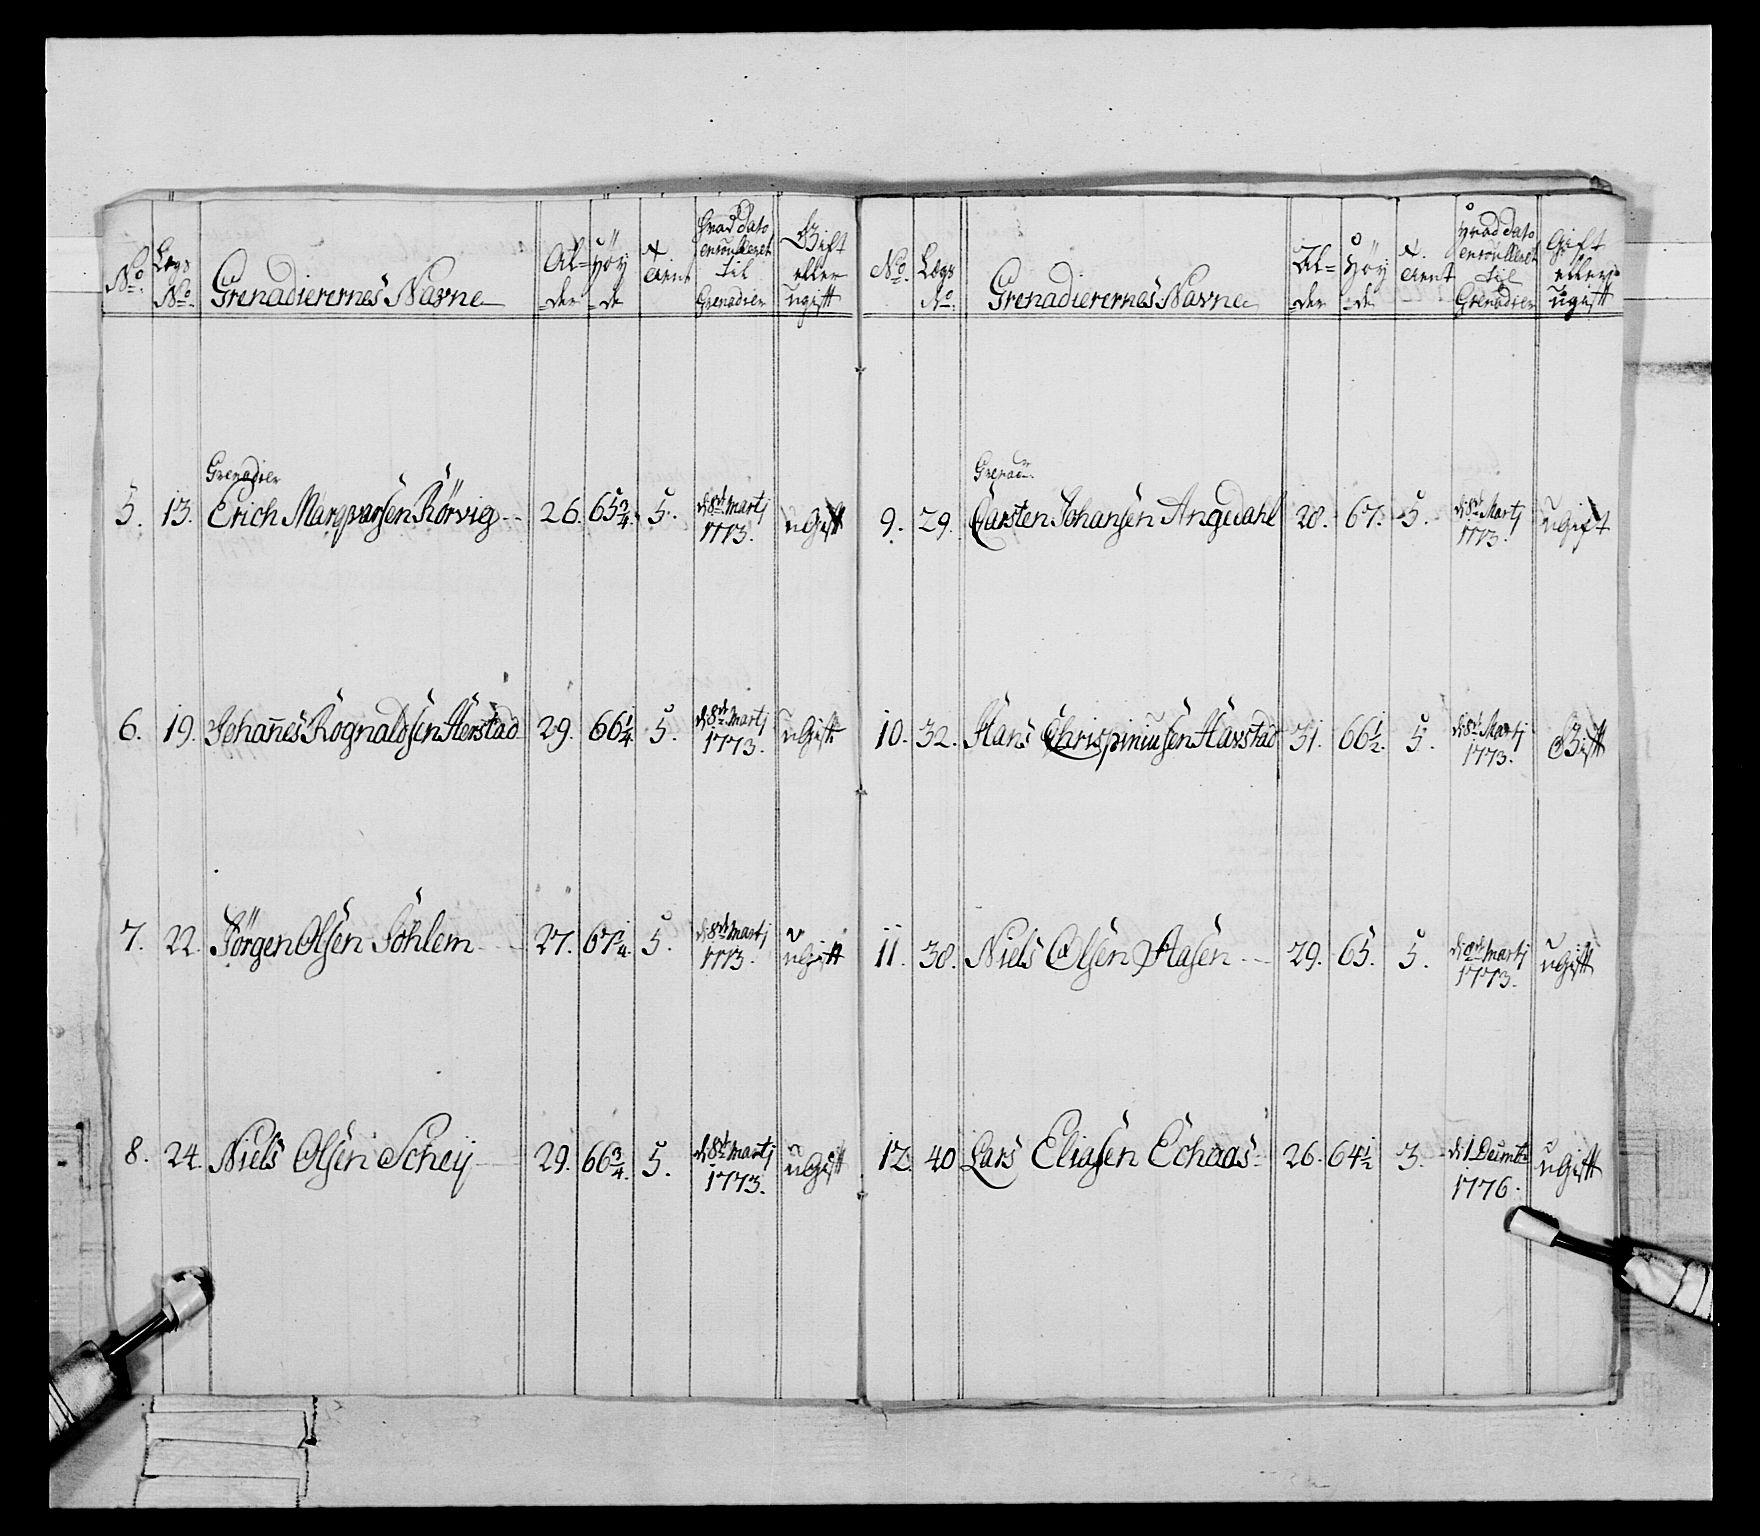 No. Lægs No. Grenadierernes Navne Al-der Höy-de Tient Hvad Dato enroulleret til Grenadier Gift eller ugift
Grenadier
5. 13. Erich Marqvarsen Rörvig 26. 65 3/4. 5. d 8de Martj 1773. ugift
6. 19. Johañes Rognaldsen Herstad 29. 66 1/4. 5. d 8de Martj 1773. ugift
7. 22. Jörgen Olsen Sohlem 27. 67 1/4. 5. d 8de Martj 1773. ugift
8. 24. Niels Olsen Scheij 29. 66 3/4. 5. d 8de Martj 1773. ugift
No. Lægs No. Grenadierernes Navne Al-der Höy-de Tient Hvad Dato enroulleret til Grenadier Gift eller ugift
Grenadr.
9. 29. Carsten Johansen Angedahl 28. 67. 5. d 8de Martj 1773. ugift
10. 32. Hans Chrispiniusen Havstad 31. 66 1/2. 5. d 8de Martj 1773. Gift
11. 38. Niels Olsen Aasen 29. 65. 5. d 8de Martj 1773. ugift
12. 40 Lars Eliasen Echaas 26. 64 1/2 3. d 1 1776. ugift